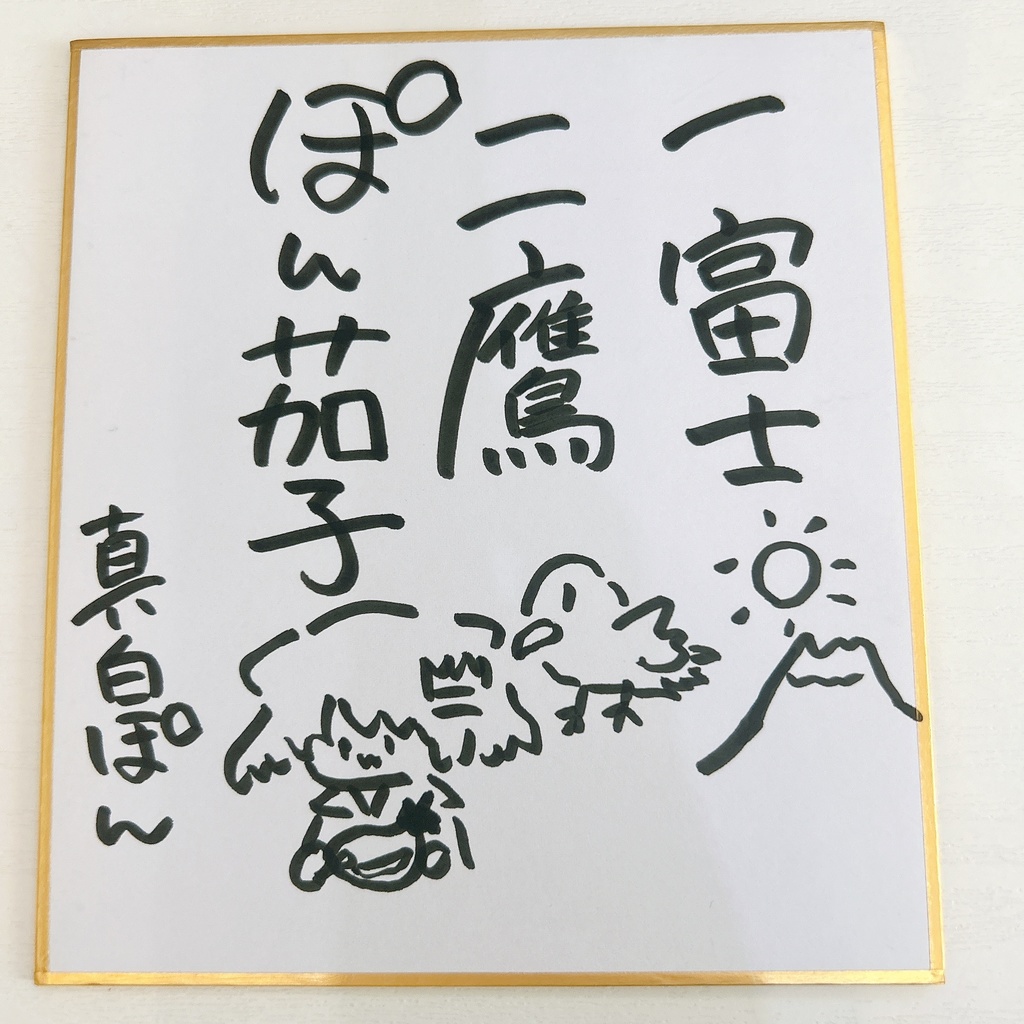 一富士
二鷹
ぽん茄子
真白ぽん